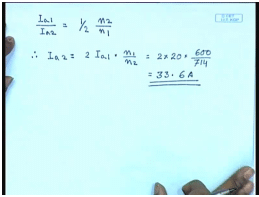 Ia1/Ia2 = 1/2 n2/n1
∴ Ia2 = 2 Ia1 · n1/n2 = 2 × 20 × 600/714
= 33.6 A